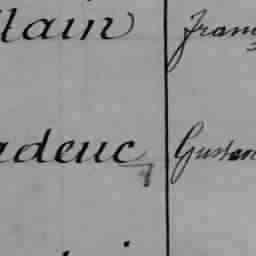 llain Fran
adeuc Gustav